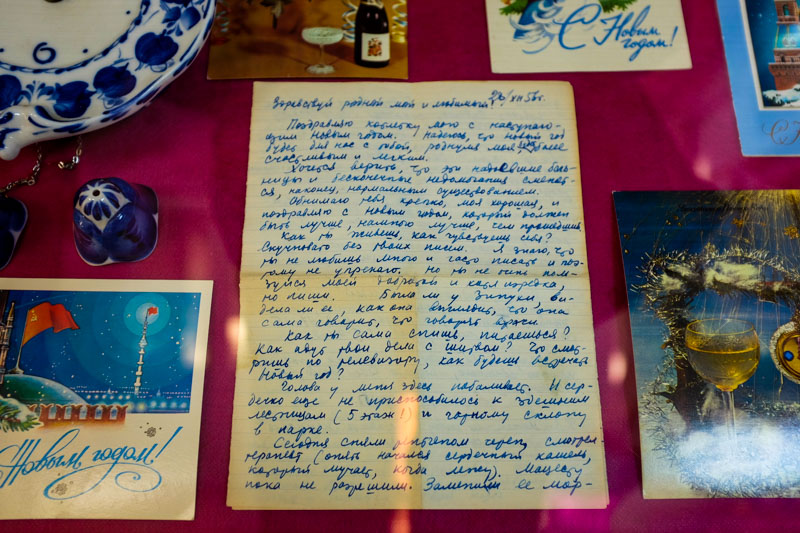 6
С Новым
годом!
Здравствуй родной мой и любимый! 26/XII 58 г.
Поздравляю мою с наступаю-
щим Новым годом. Надеюсь, что новый год
будет для нас с тобой, роднуля моя, более
счастливым и легким.
Хочется верить, что эти надоевшие боль-
ницы и бесконечные недомогания сменят-
ся, наконец, нормальным существованием.
Обнимаю тебя крепко, моя хорошая, и
поздравляю с Новым годом, который должен
быть лучше, намного лучше, чем прошедший.
Как ты живешь, как чувствуешь себя?
Скучновато без твоих писем. Я знаю, что
ты не любишь много и часто писать и поэ-
тому не упрекаю. Но ты не очень поль-
зуйся моей добротой и хотя изредка,
но пиши. Была ли у Зинухи, ви-
дела ли ее, как она выглядит, что она
сама говорит, что говорят врачи.
Как ты сама спишь, питаешься?
Как идут твои дела с шитвом? Что смот-
ришь по телевизору, как будешь встречать
Новый год?
Голова у меня здесь побаливает. И сер-
дечко еще не приспособилось к здешним
лестницам (5 этаж!) и горному склону
в парке.
Сегодня сняли рентгеном череп, смотрел
терапевт (опять начался сердечный кашель,
который мучает, когда лежу). Мацесту
пока не разрешили. Заменили ее мор-
С Новым годом!